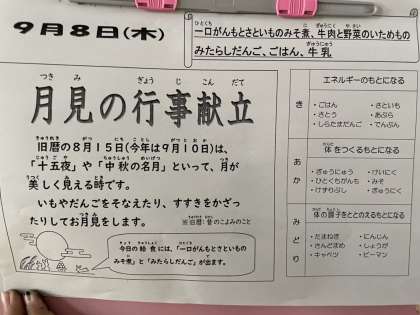 9月8日(木)
一口がんもとさといものみそ煮、牛肉と野菜のいためもの
みたらしだんご、ごはん、牛乳
月見の行事献立
旧暦の8月15日(今年は9月10日)は、
「十五夜」や「中秋の名月」といって、月が
美しく見える時です。
いもやだんごをそなえたり、すすきをかざっ
たりしてお月見をします。
※旧暦:昔のこよみのこと
今日の給食には、「一口がんもとさといもの
みそ煮」と「みたらしだんご」が出ます。
エネルギーのもとになる
き
・ごはん ・さといも
・さとう ・あぶら
・しらたまだんご ・でんぷん
体をつくるもとになる
あか
・ぎゅうにゅう ・けいにく
・ひとくちがんも ・みそ
・けずりぶし ・ぎゅうにく
体の調子をととのえるもとになる
みどり
・たまねぎ ・にんじん
・さんどまめ ・しょうが
・キャベツ ・ピーマン